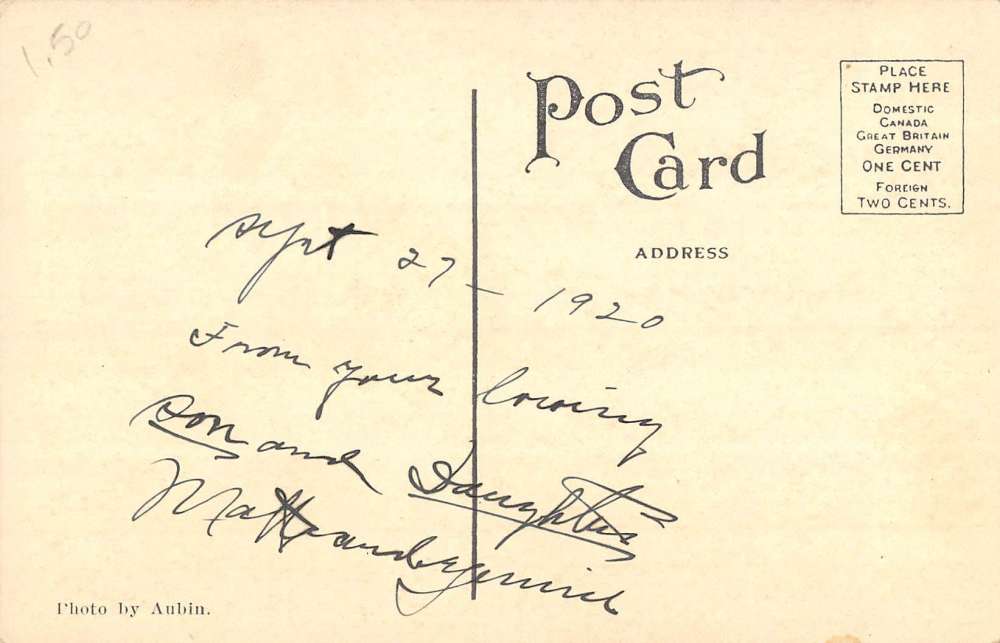 1.50
Post
Card
PLACE
STAMP HERE
DOMESTIC
CANADA
GREAT BRITAIN
GERMANY
ONE CENT
FOREIGN
TWO CENTS.
ADDRESS
Sept 27 - 1920
From your loving
son and Daughter
Matt and
Photo by Aubin.